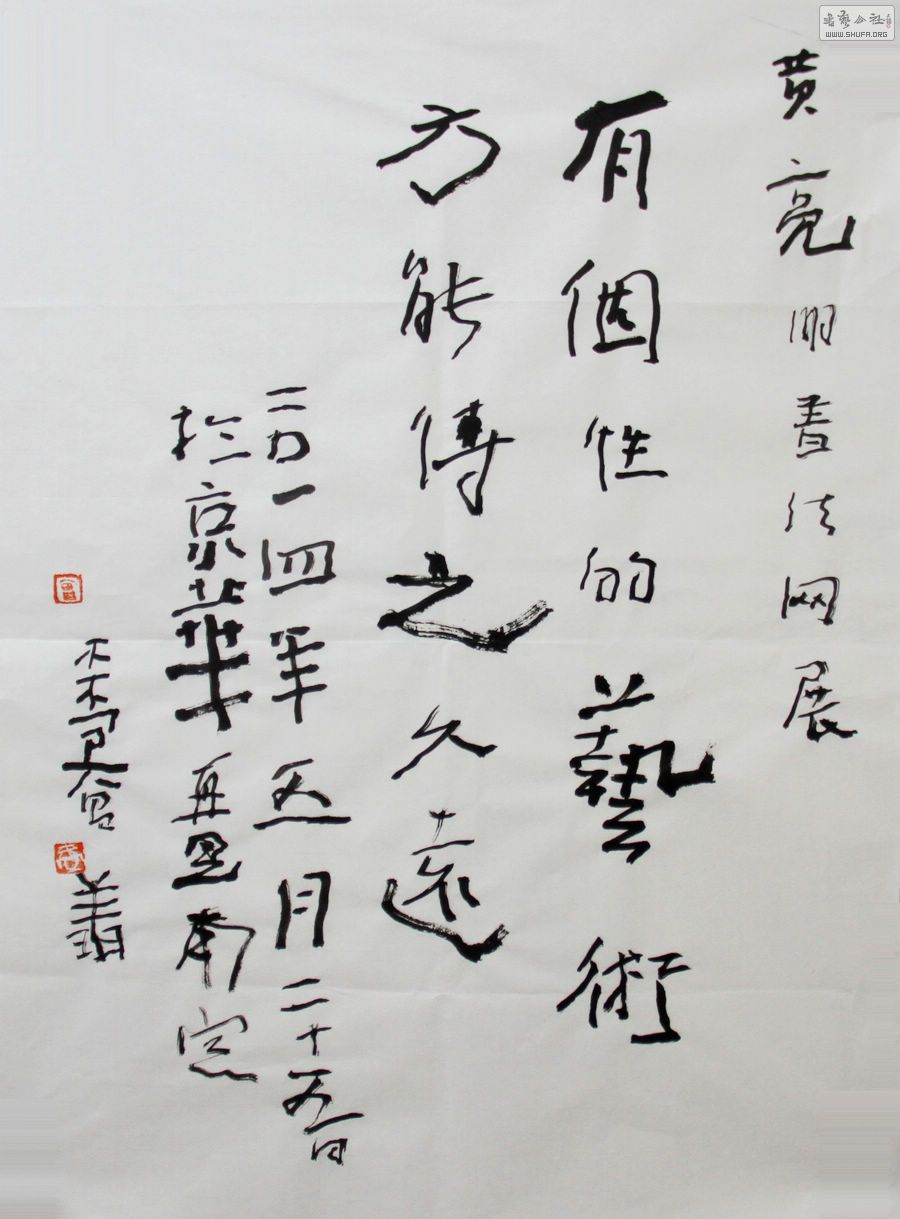 黄亮明書法网展
有個性的藝術
方能傳之久遠
二〇一四年五月二十五日
於京華再思南窓
曾翥
書藝公社
WWW.SHUFA.ORG